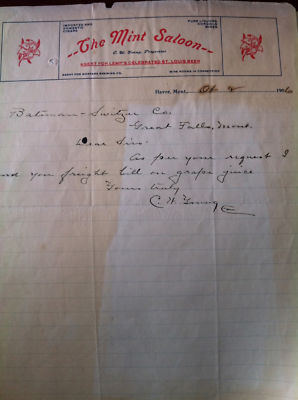 IMPORTED AND
DOMESTIC
CIGARS
PURE LIQUORS,
CORDIALS
WINES
The Mint Saloon
C. W. Young, Proprietor
AGENT FOR LEMP'S CELEBRATED ST. LOUIS BEER
AGENT FOR MONTANA BREWING CO.
WINE ROOMS IN CONNECTION
Havre, Mont., Oct 2 190
Bateman-Switzer Co.
Great Falls, Mont.
Dear Sirs:
As per your request I
send you freight bill on grape juice
Yours truly
C. W. Young